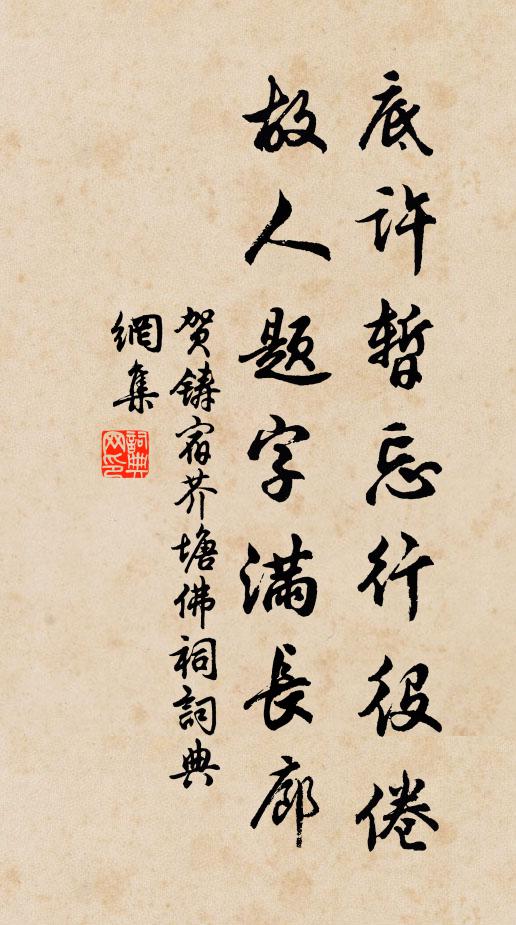 底许暂忘行役倦
故人题字满长廊
贺铸宿芥塘佛祠詞典
網集
詞典
网印